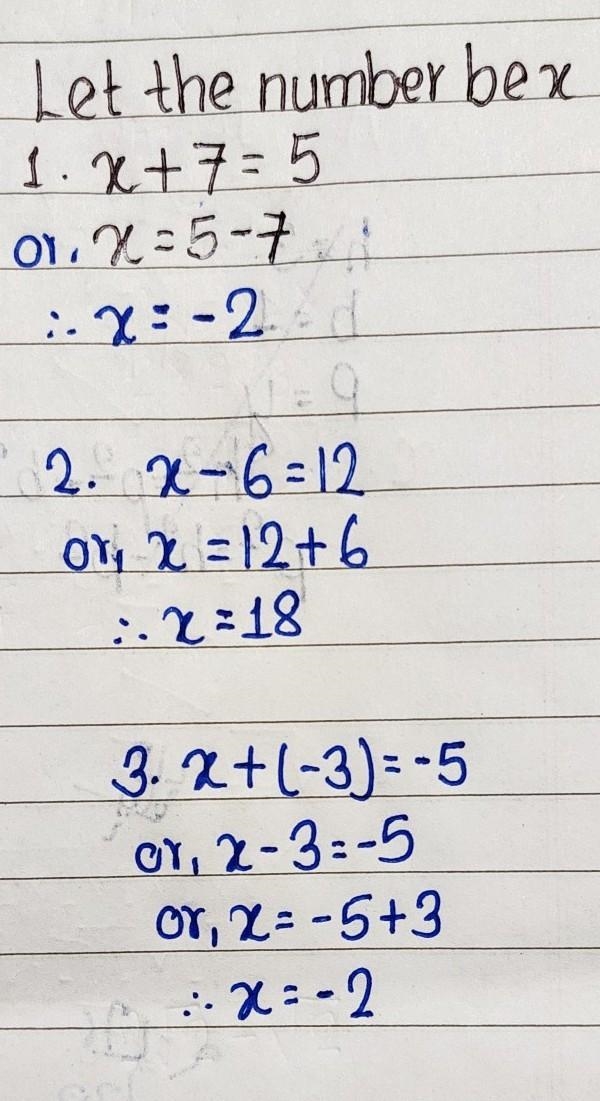 Let the number be x
1. x + 7 = 5
or, x = 5 - 7
∴ x = - 2
2. x - 6 = 12
or, x = 12 + 6
∴ x = 18
3. x + (-3) = -5
or, x - 3 = -5
or, x = -5 + 3
∴ x = - 2